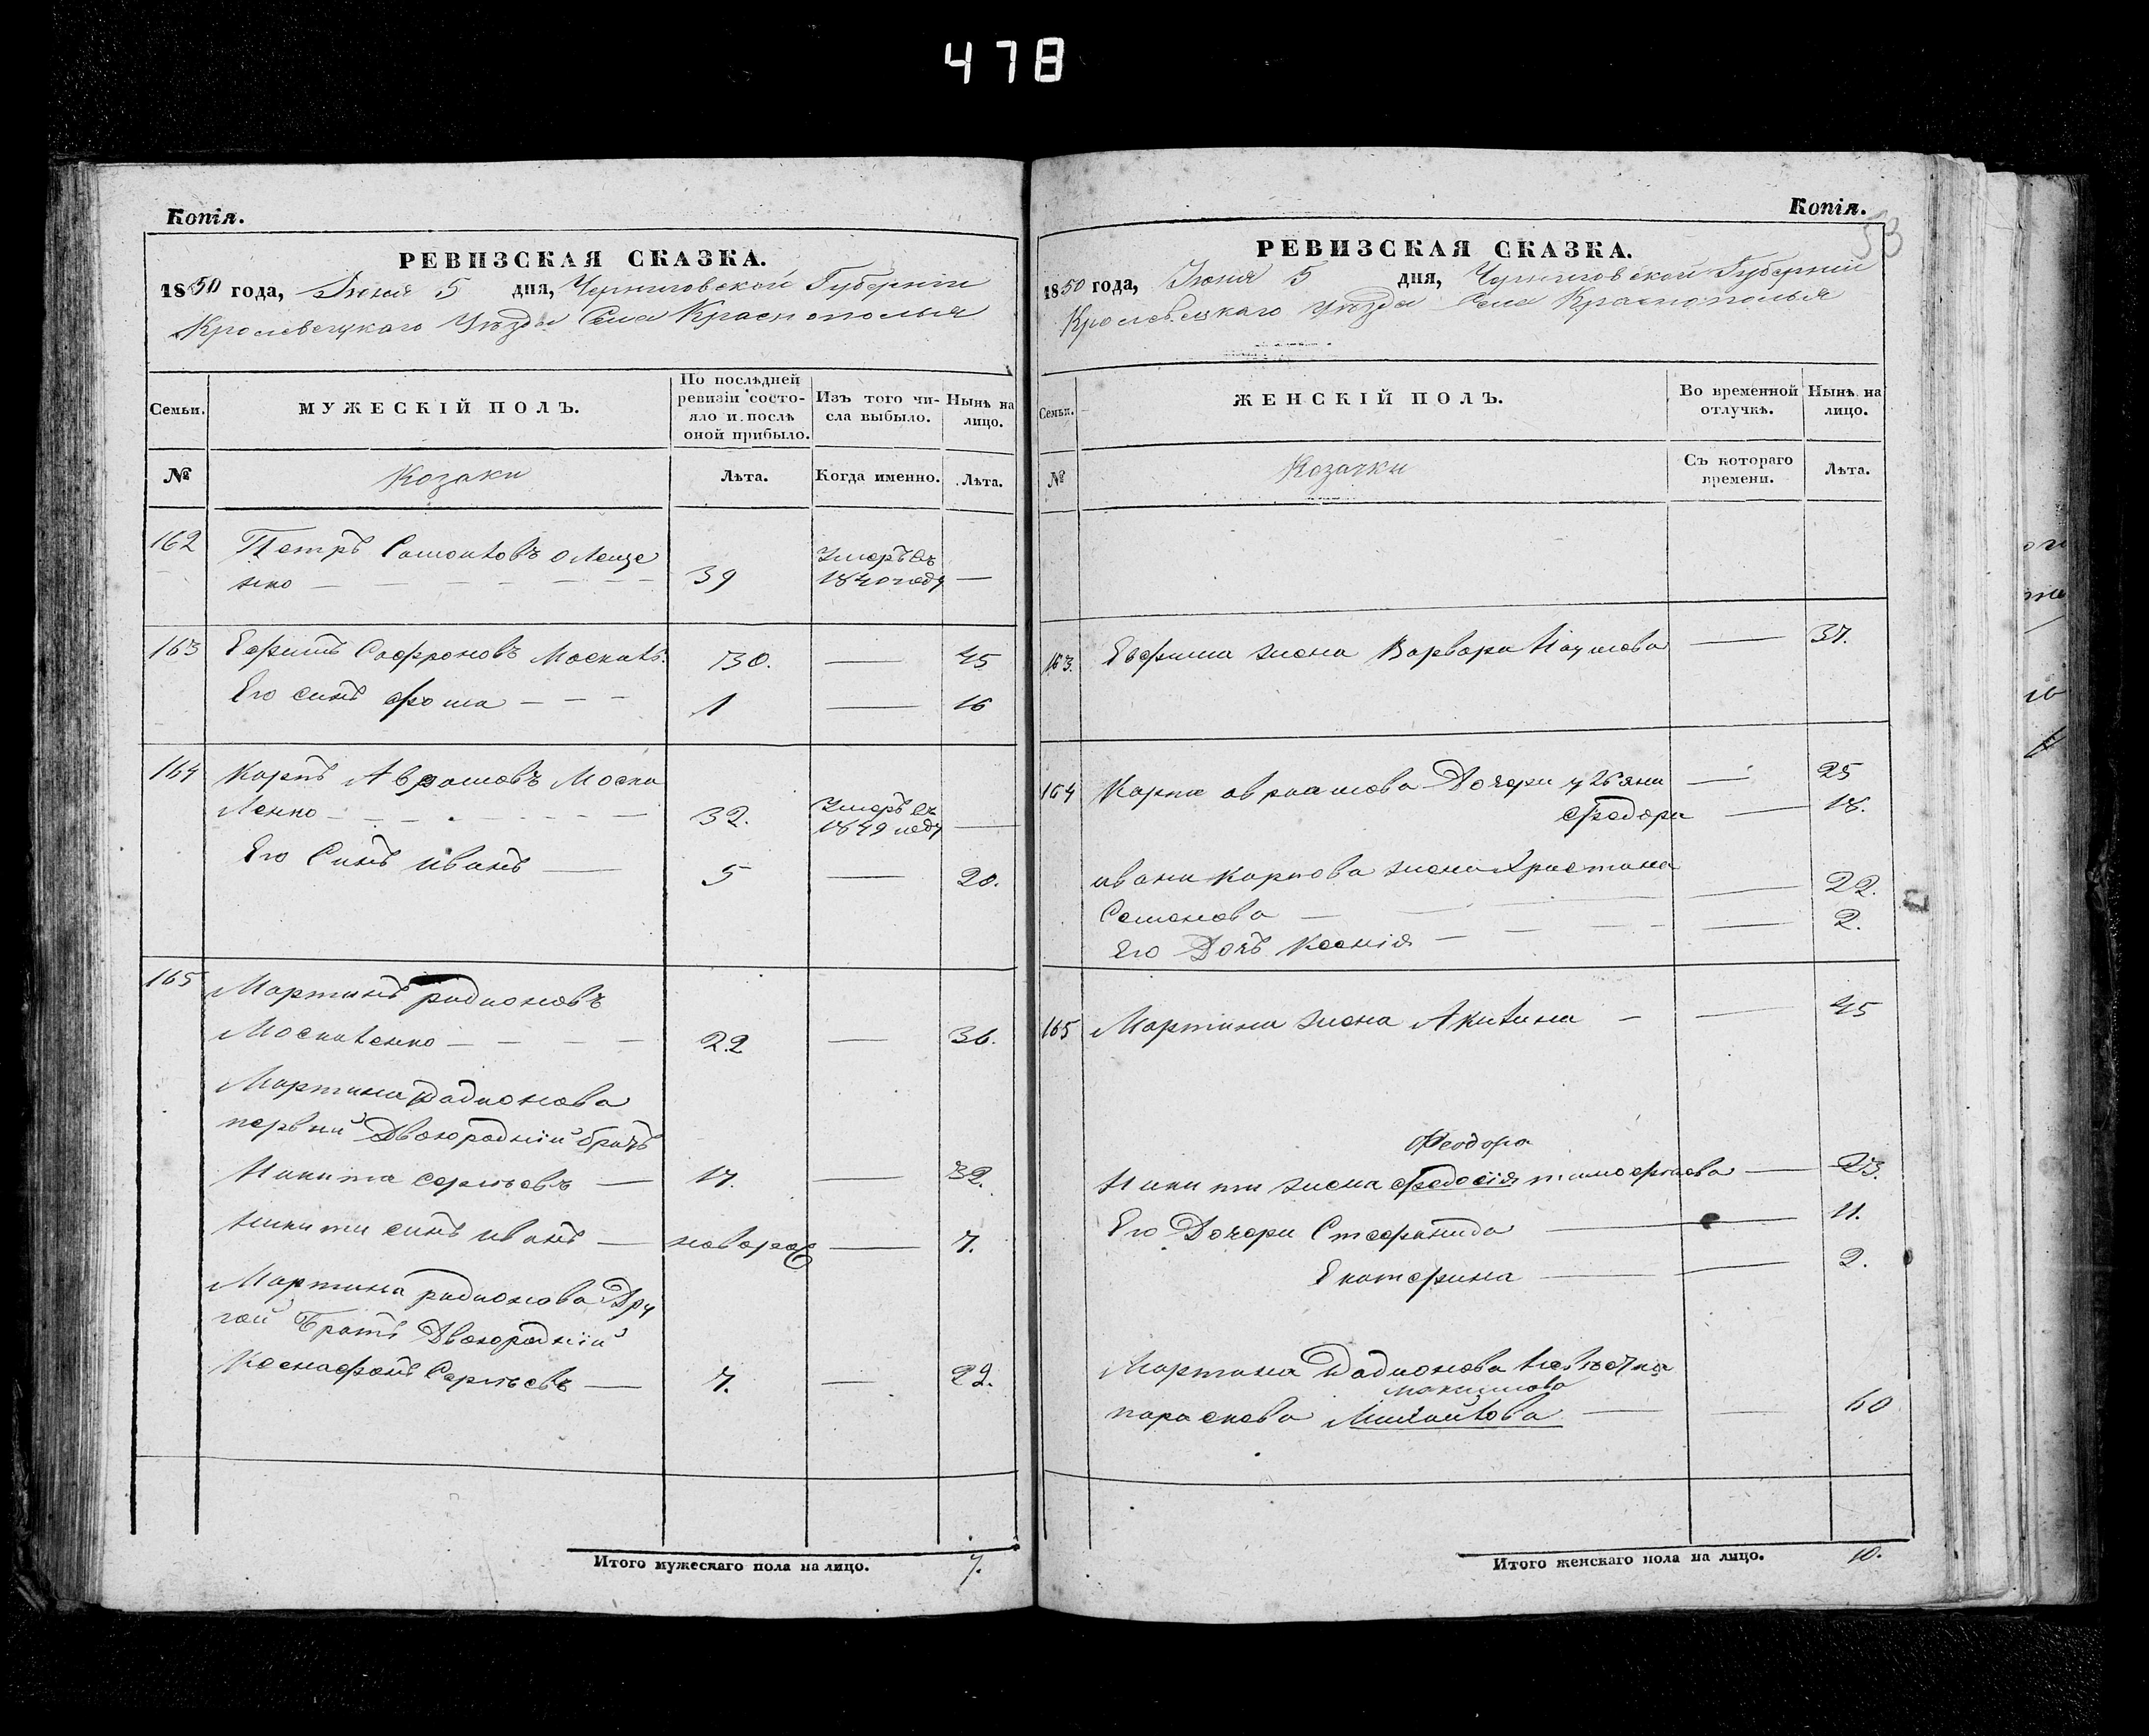 478
Копія.
РЕВИЗСКАЯ СКАЗКА.
1850 года, Іюня 5 дня, Черниговской Губерніи
Кролевецкаго Уѣзда Села Краснополья
Семьи.
МУЖЕСКІЙ ПОЛЪ.
По послѣдней
ревизіи состо-
яло и послѣ
оной прибыло.
Изъ того чи-
сла выбыло.
Нынѣ на
лицо.
№
Козаки
Лѣта.
Когда именно.
Лѣта.
162
Петръ Самойловъ
нко
39
Умеръ въ
1840 году
163 Ефимъ Софроновъ Москал. 30. 45
Его синъ фома 1 16
164 Карпъ Аврамовъ Моска
ленко 32. Умеръ въ
1849 году
Его Синъ иванъ 5 20.
165 Мартинъ радионовъ
Москаленко 22 36.
Мартина Радионова
первий Двоюродній братъ
Никита сергѣевъ 17. 32.
никити синъ иванъ новорож 7.
Мартина радионова Дру
гой Братъ Двоюродній
Ксенофонъ Сергѣевъ 7. 22.
Итого мужескаго пола на лицо. 7.
Копія.
53
РЕВИЗСКАЯ СКАЗКА.
1850 года, Іюня 5 дня, Черниговской Губерніи
Кролевецкаго Уѣзда Села Краснополья
Семьи.
ЖЕНСКІЙ ПОЛЪ.
Во временной
отлучкѣ.
Нынѣ на
лицо.
№
Козачки
Съ котораго
времени.
Лѣта.
163. Евфима жена Варвара Наумова 37.
164 Карпа авраамова Дочери улияна 25
федора 18.
ивана карпова жена Христина
Семенова 22.
Его Дочь Ксенія 2.
165 Мартина жена Акилина 45
Феодора
Никити жена федосія тимофѣева 23.
Его Дочери Стефанида 11.
Екатерина 2.
Мартина Радионова невѣстка
максимова
параскева Михайлова 60
Итого женскаго пола на лицо. 10.